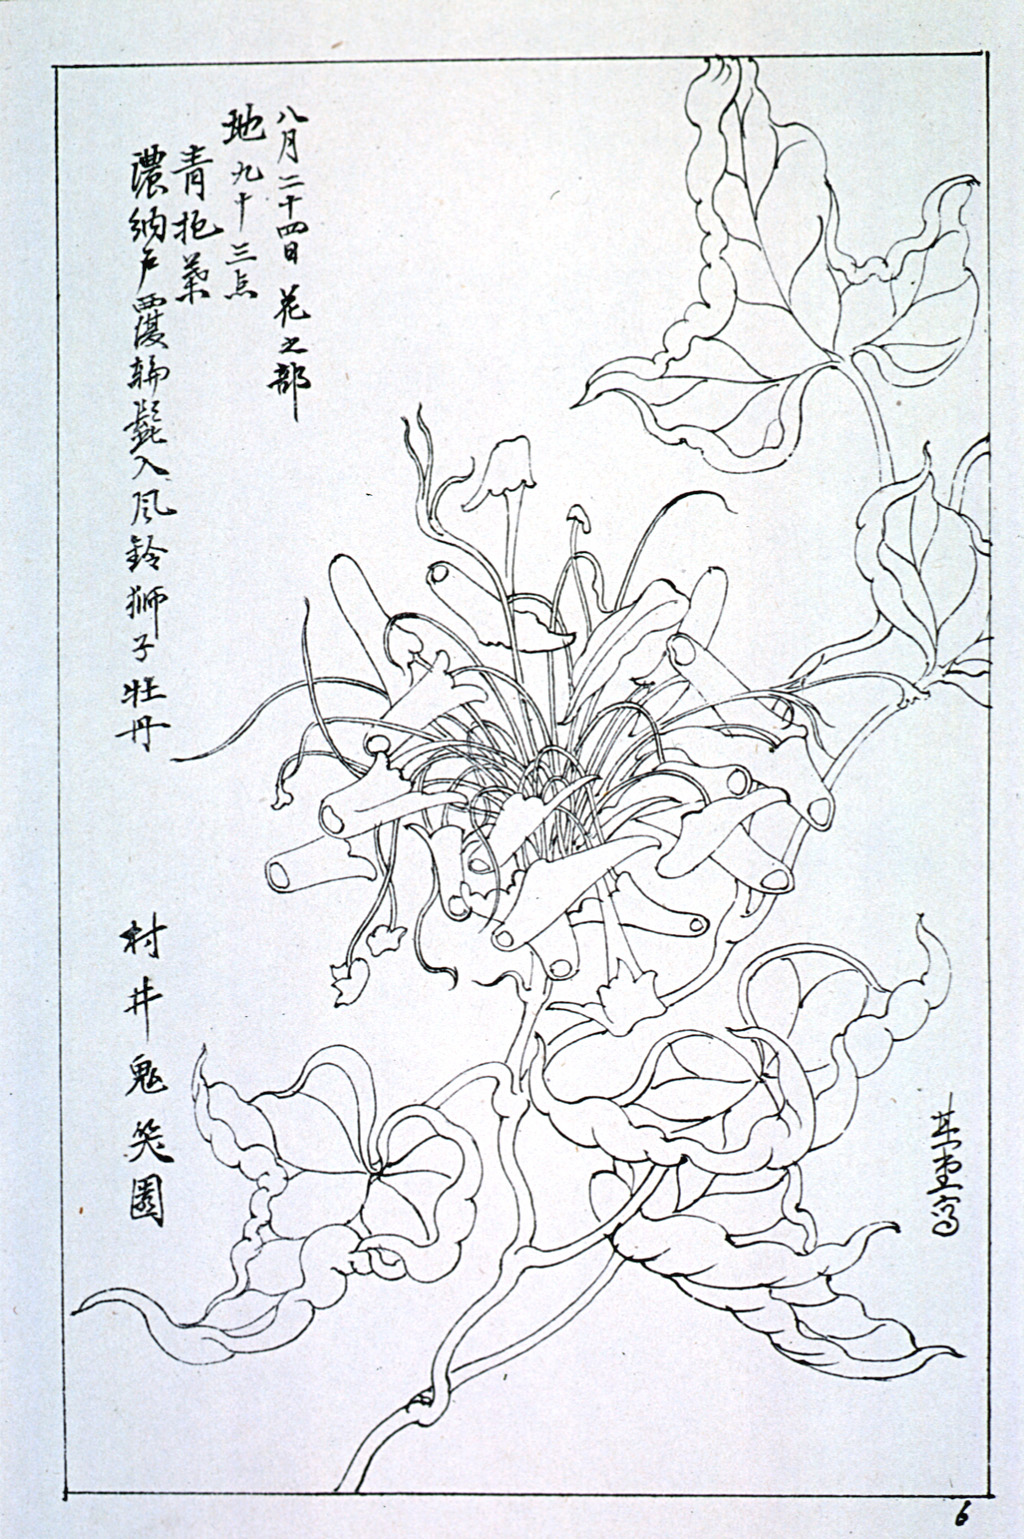 八月二十四日 花之部
地九十三点
青抱葉
濃納戸覆輪髭入風鈴獅子牡丹
村井鬼笑園
写
6